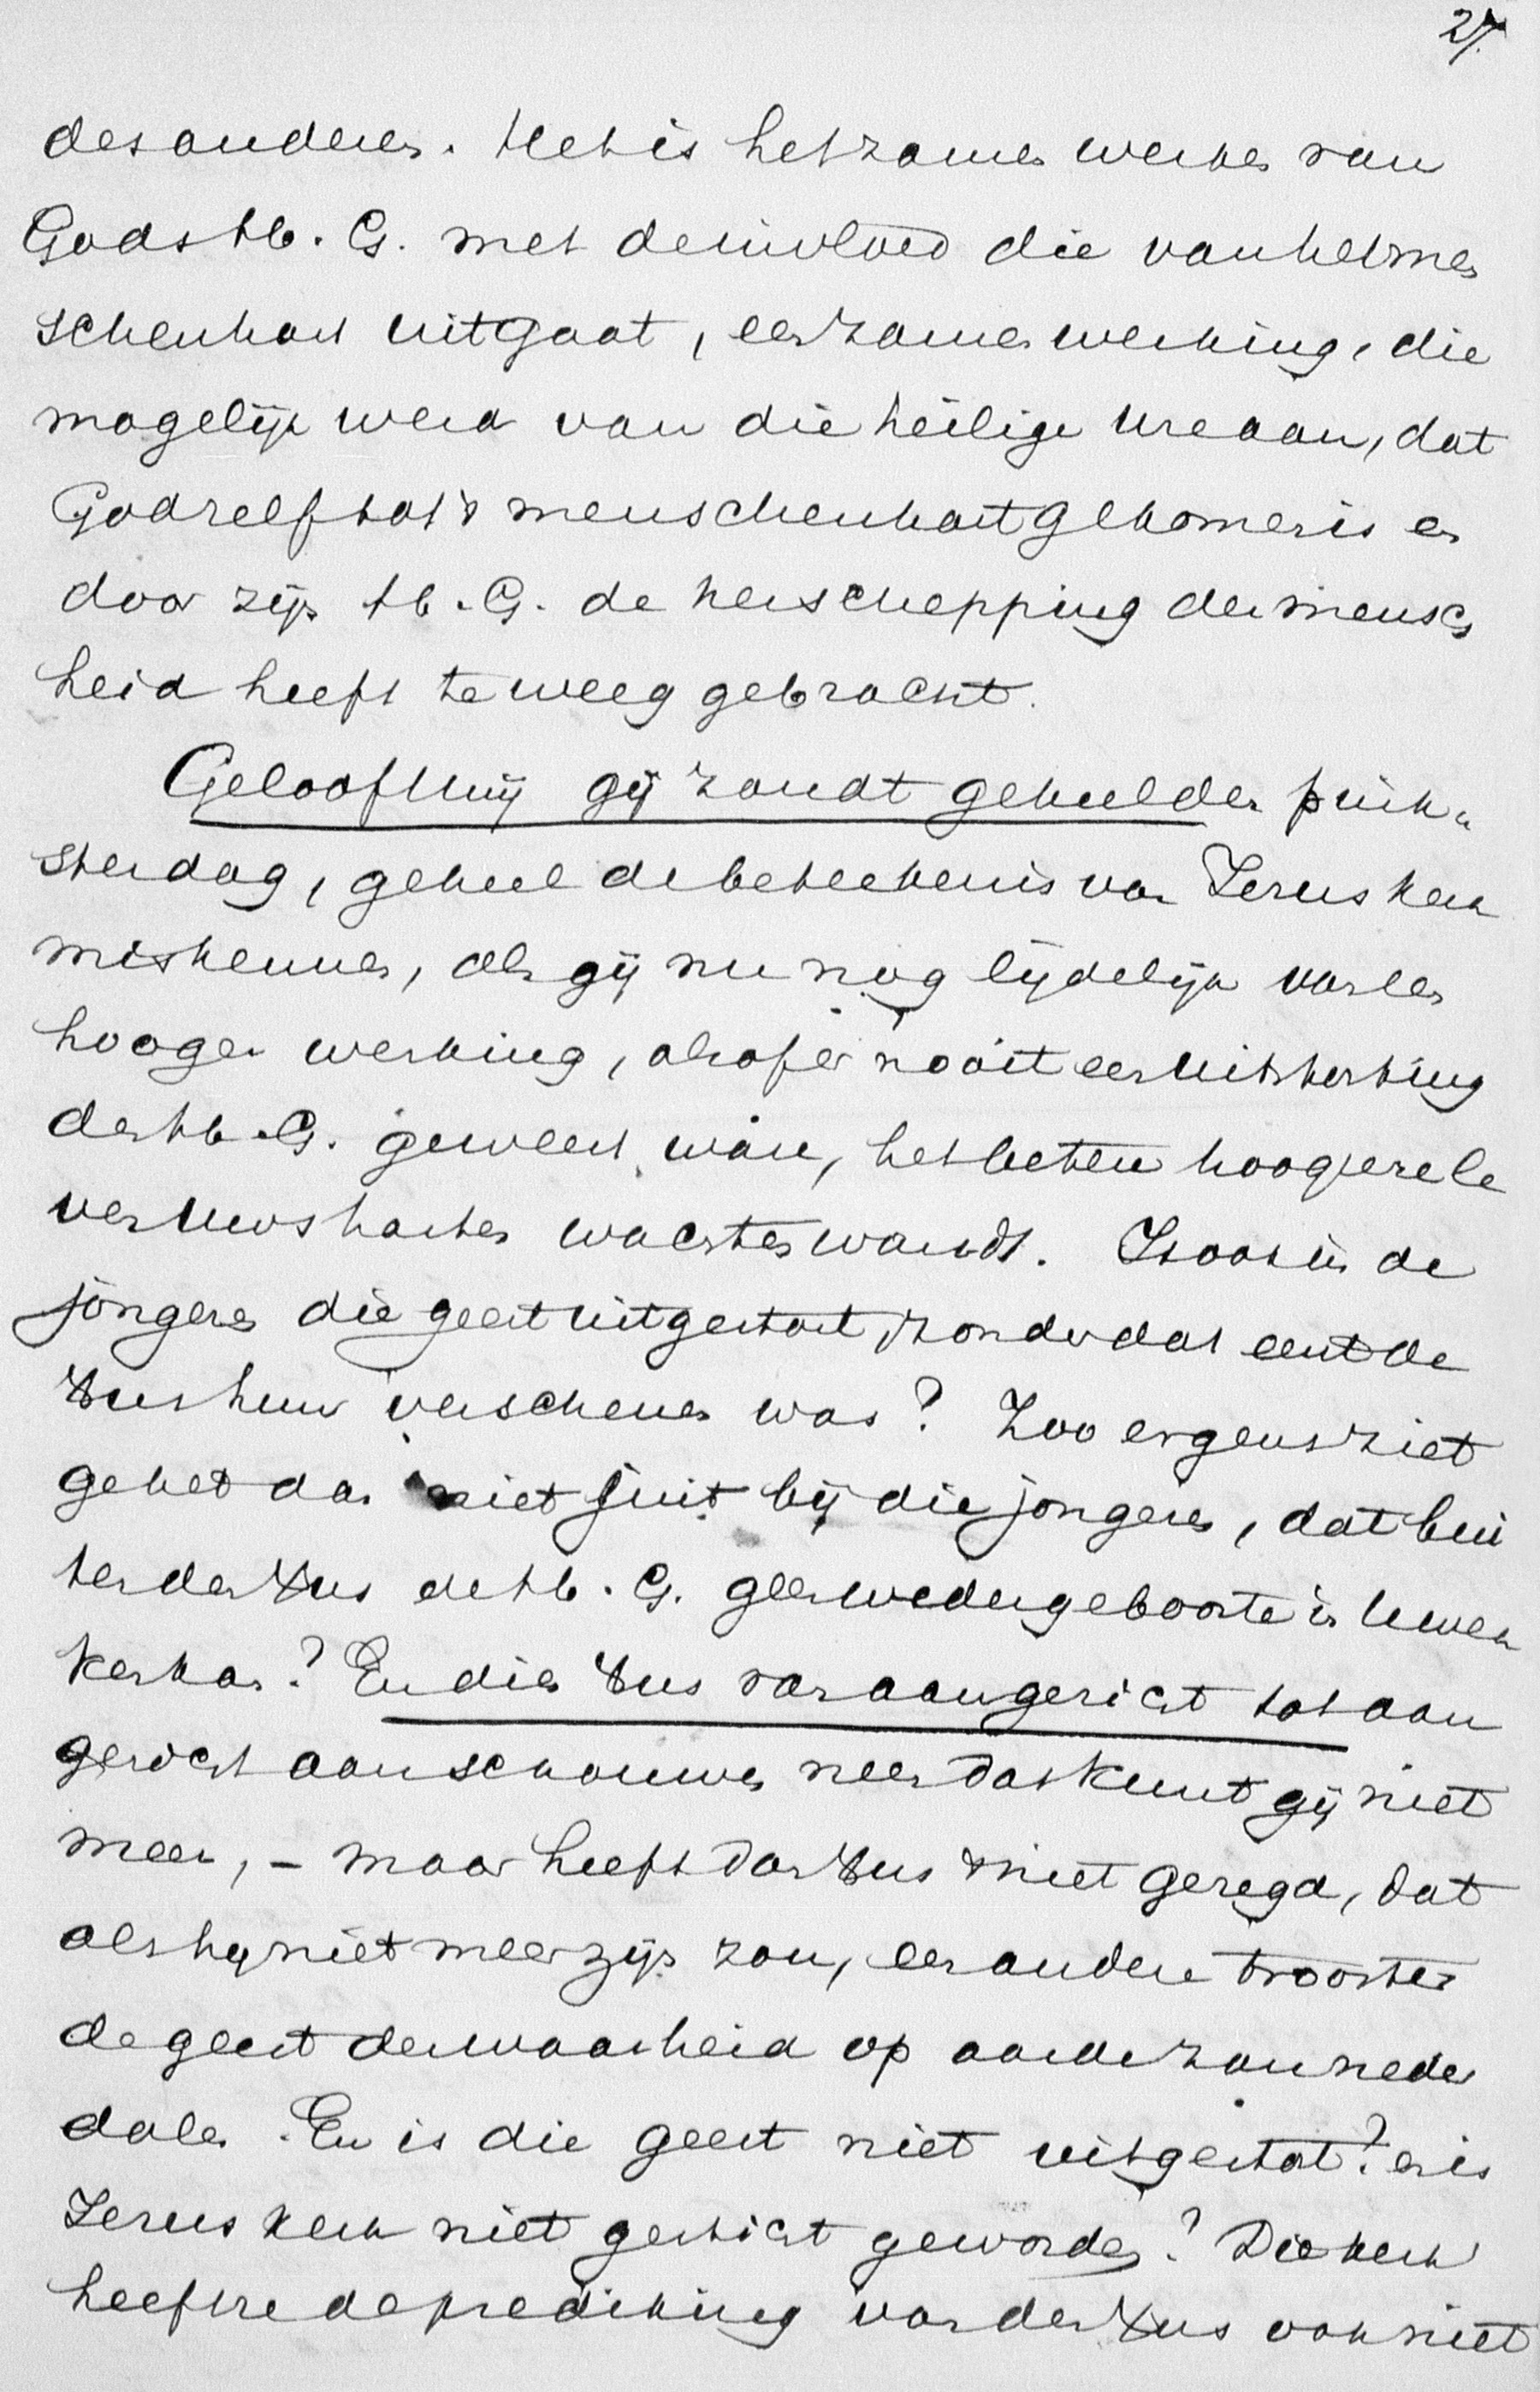 27.
des anderen. Het is het zamen werken van
Gods Hb. G. met den invloed die van het men
schenhart uitgaat, een zamenwerking, die
mogelijk werd van die heilige ure aan, dat
God zelf tot 's menschen hart gekomen is en
door zijn Hb. G. de herschepping der mensch
heid heeft te weeg gebracht.
Geloof mij gij zoudt geheel den pink-
sterdag, geheel de beteekenis van Jezus kerk
miskennen, als gij nu nog lijdelijk van een
hooger werking, alsof er nooit een uitstorting
des Hb. G. geweest ware, het betere hoogere le
ven Uws harten wachten wondt. Is ooit in de
jongeren die geest uitgestort, zonder dat eerst de
Xus hun verschenen was? Zoo ergens ziet
ge het dan niet juist bij die jongeren, dat bui
ten den Xus des Hb. G. geen wedergeboorte in U wer
ken kan? En dien Xus van aangezicht tot aan
gezicht aanschouwen neen dat kunt gij niet
meer, - maar heeft dan Xus niet gezegd, dat
als hij niet meer zijn zou, een andere trooster
de geest der waarheid op aarde zou neder
dalen. En is die geest niet uitgestort? en is
Jezus kerk niet gesticht geworden? Die kerk
heeft ze de prediking van den Xus ook niet